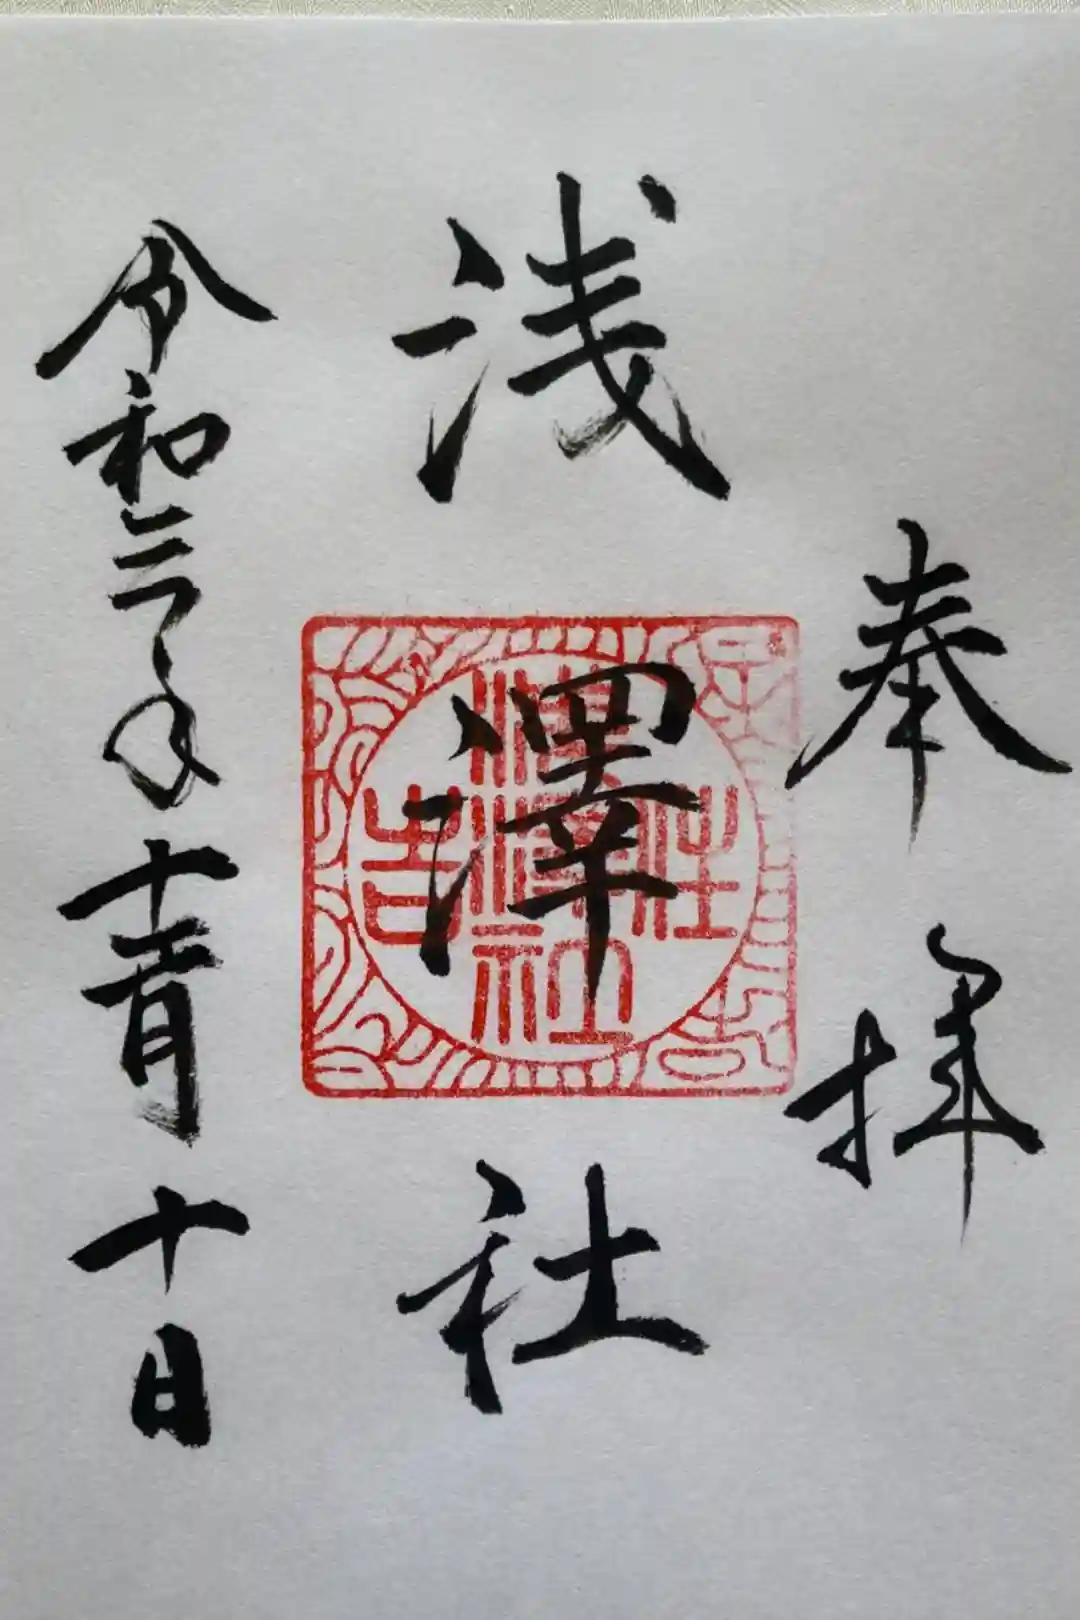 奉拝
浅澤社
住吉
淺澤社
令和三年十二月十日